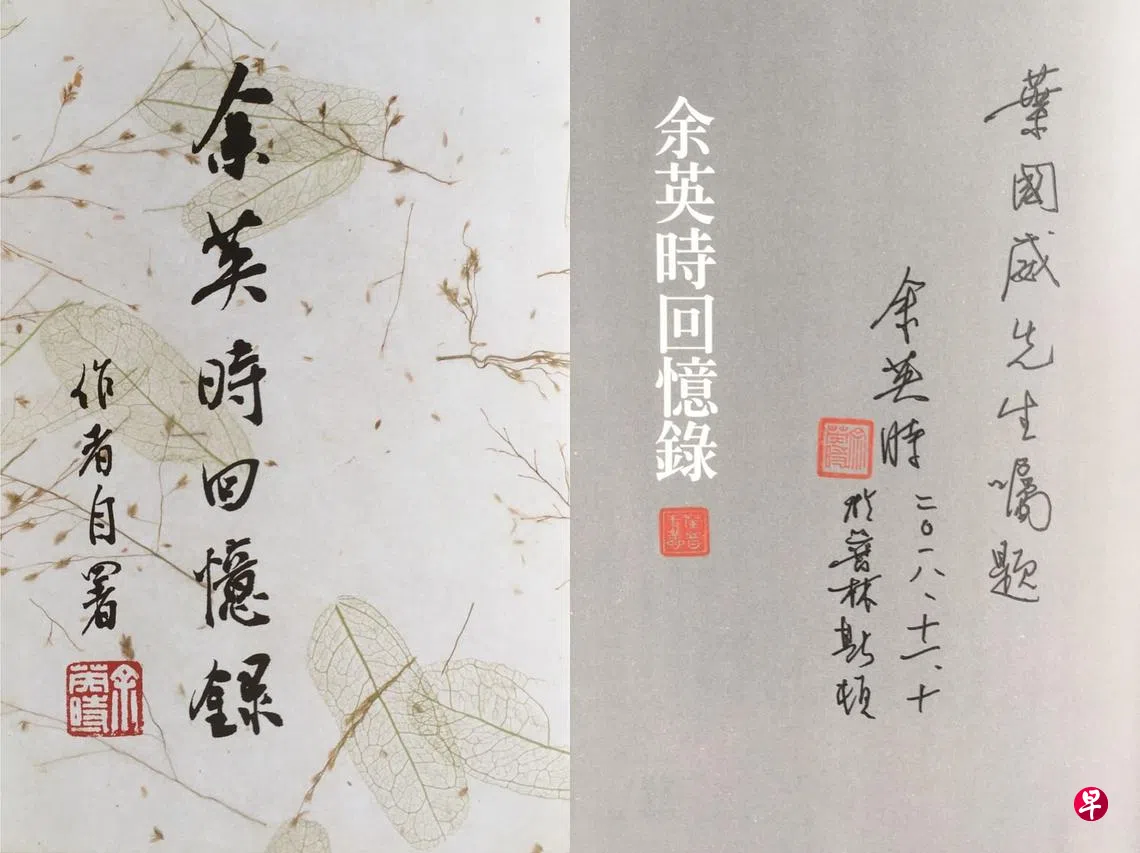 余英時回憶錄
作者自署
余英時
葉國威先生囑題
余英時
二〇一八、十一、十
於普林斯頓
余英時
余英時回憶錄
早